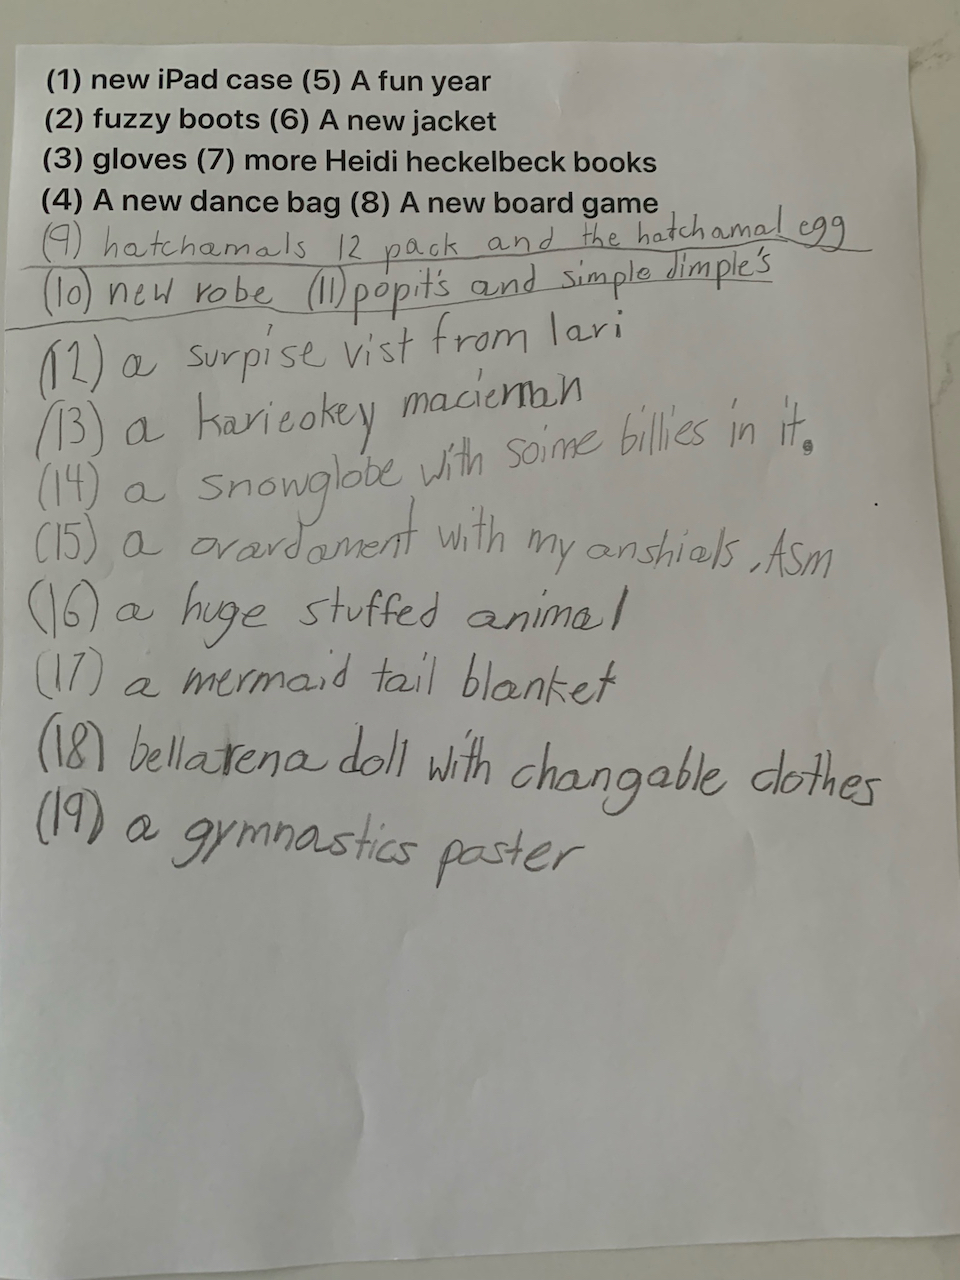 (1) new iPad case (5) A fun year
(2) fuzzy boots (6) A new jacket
(3) gloves (7) more Heidi heckelbeck books
(4) A new dance bag (8) A new board game
(9) hatchamals 12 pack and the hatchamal egg
(10) new robe (11) popit's and simple dimple's
(12) a surpise vist from lari
(13) a karieokey macieman
(14) a snowglobe with soime billies in it.
(15) a ovardament with my anshials, ASM
(16) a huge stuffed animal
(17) a mermaid tail blanket
(18) bellarena doll with changable clothes
(19) a gymnastics paster